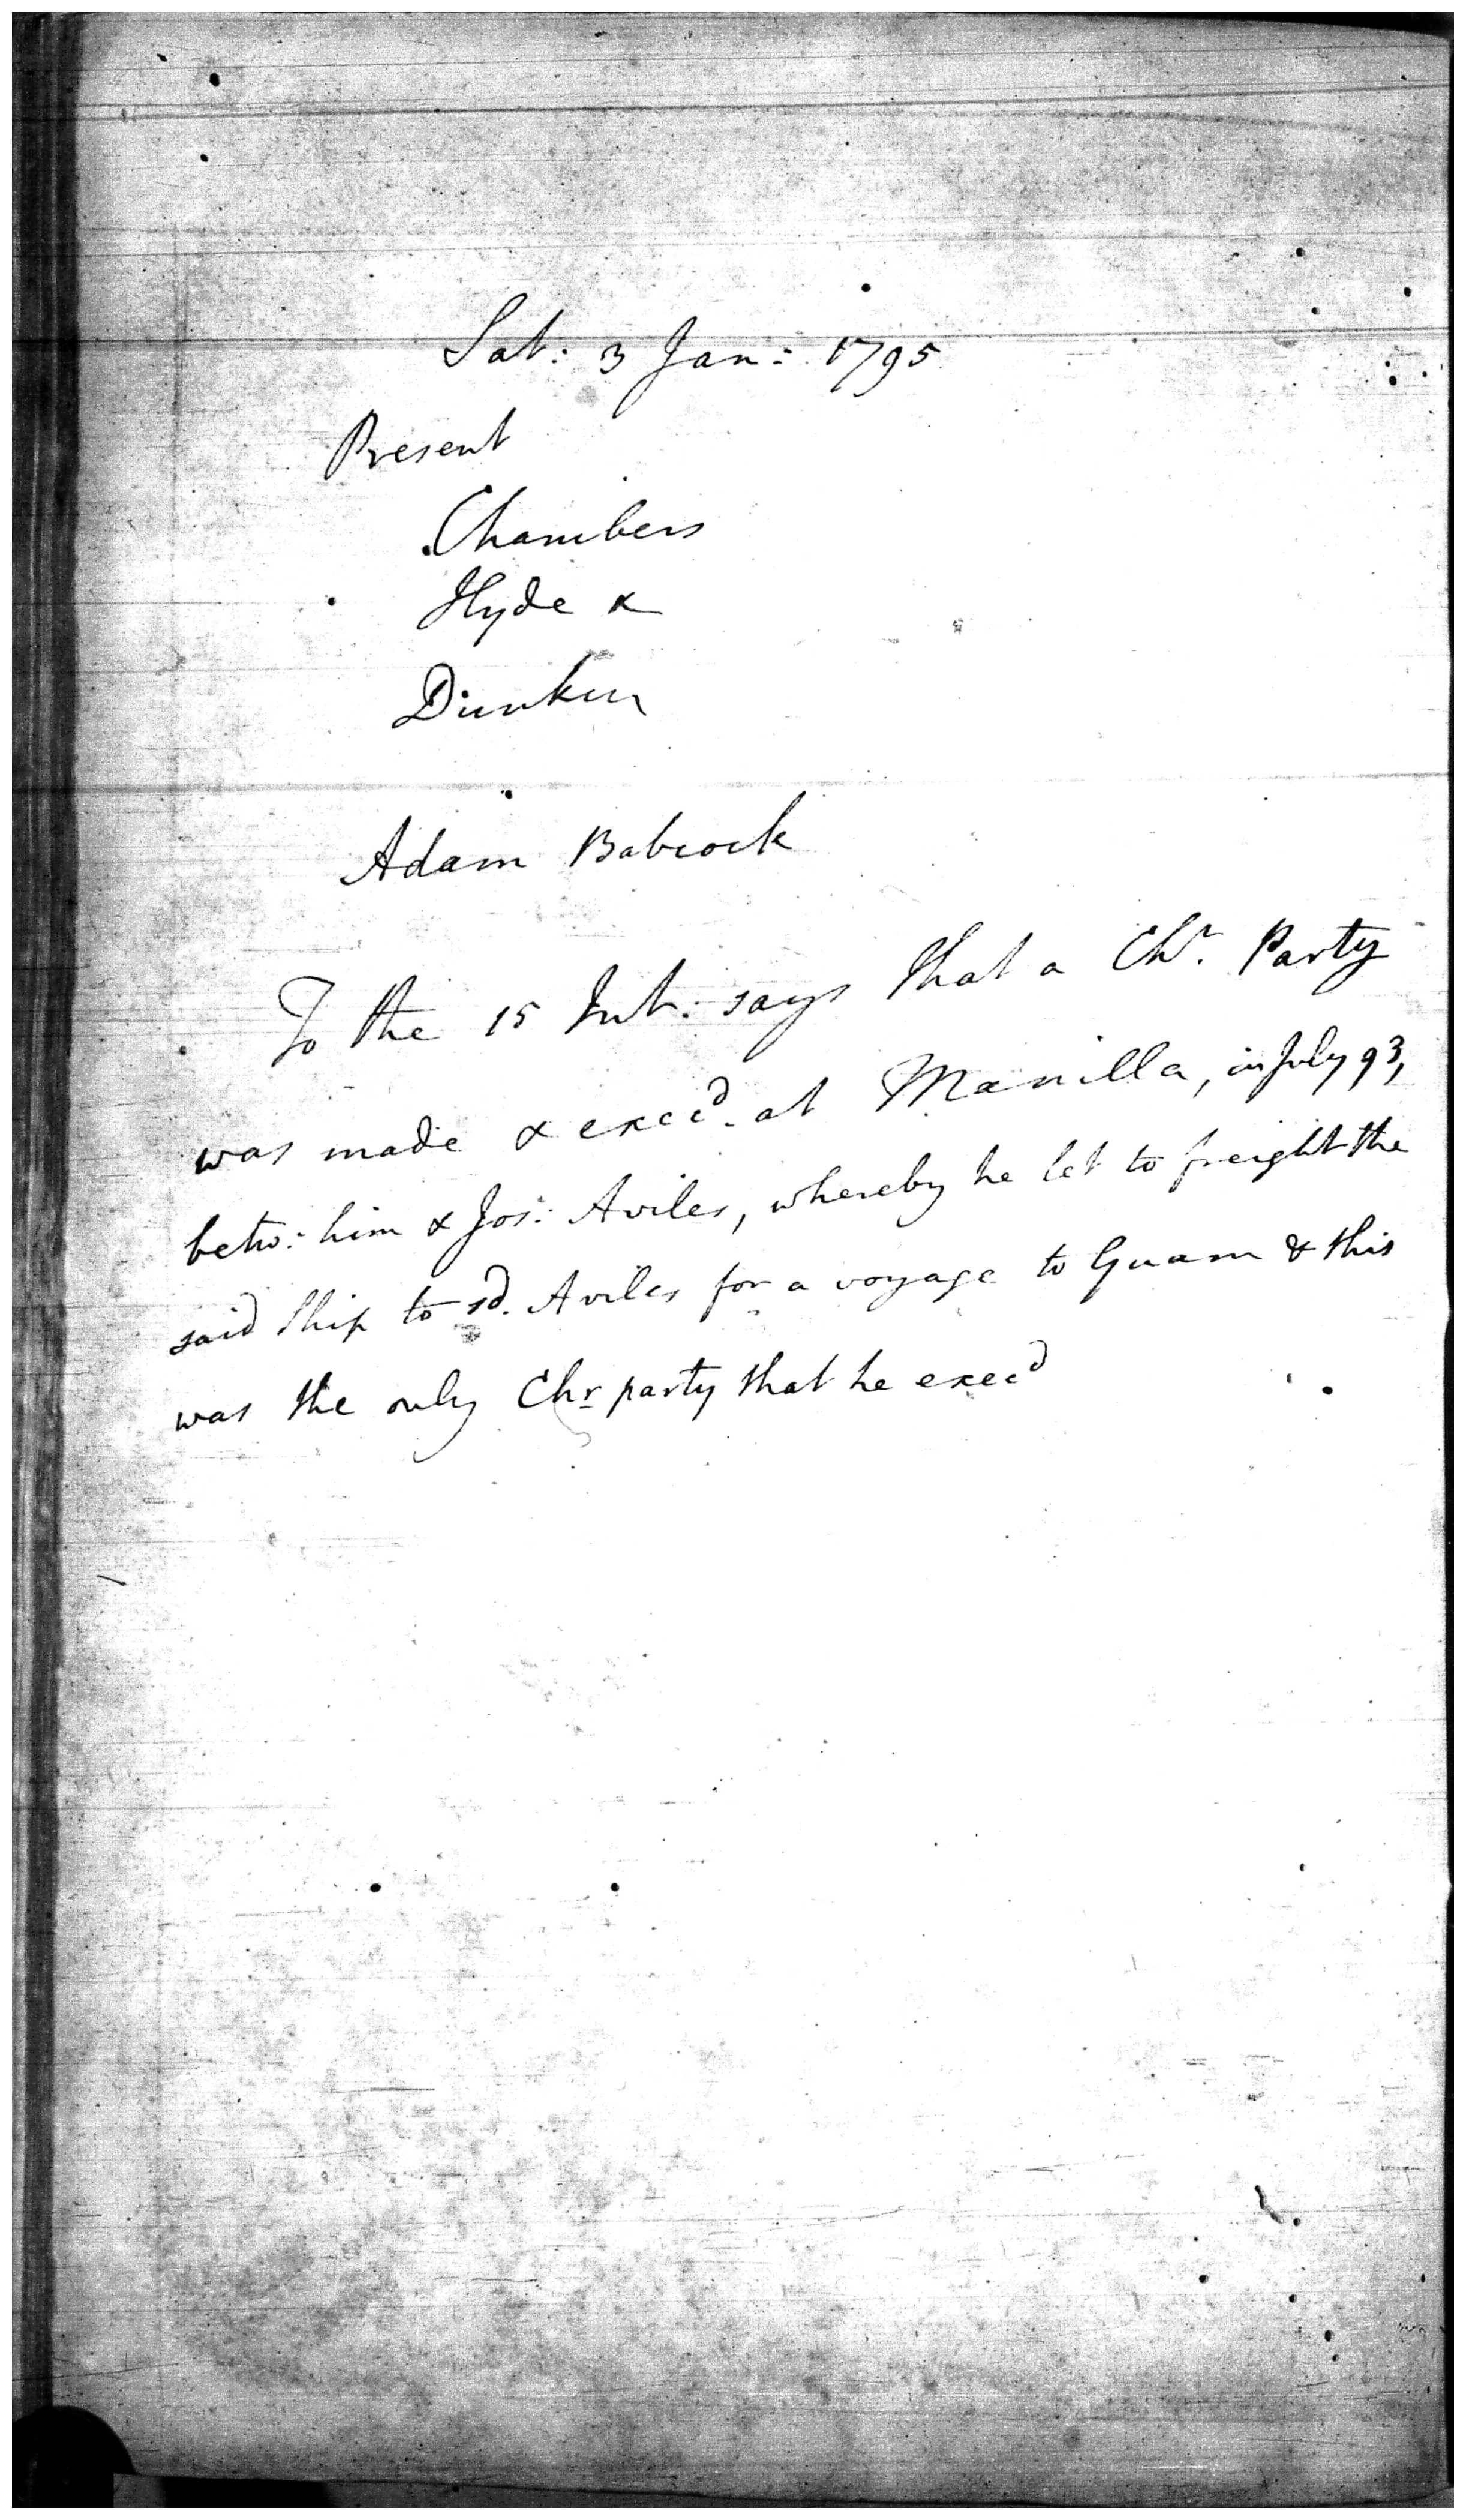 Sat: 3 Jan: 1795
Present
Chambers
Hyde &
Dunkin
Adam Babcock
To the 15 Int: says that a Chr. Party
was made & execd. at Manilla, in July 93,
betw: him & Jos: Aviles, whereby he let to freight the
said Ship to sd. Aviles for a voyage to Guam & this
was the only Chr party that he execd